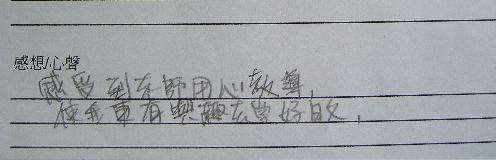 感想/心聲
感受到老師用心教導,
使我更有興趣去學好的文,